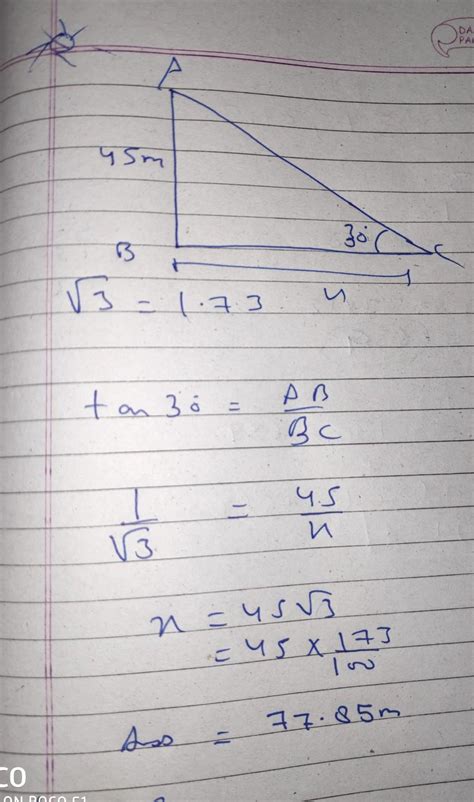 A
45m
30°
B
C
x
√3 = 1.73
tan 30° = AB/BC
1/√3 = 45/x
x = 45√3
= 45 × 173/100
Ans = 77.85m
CO